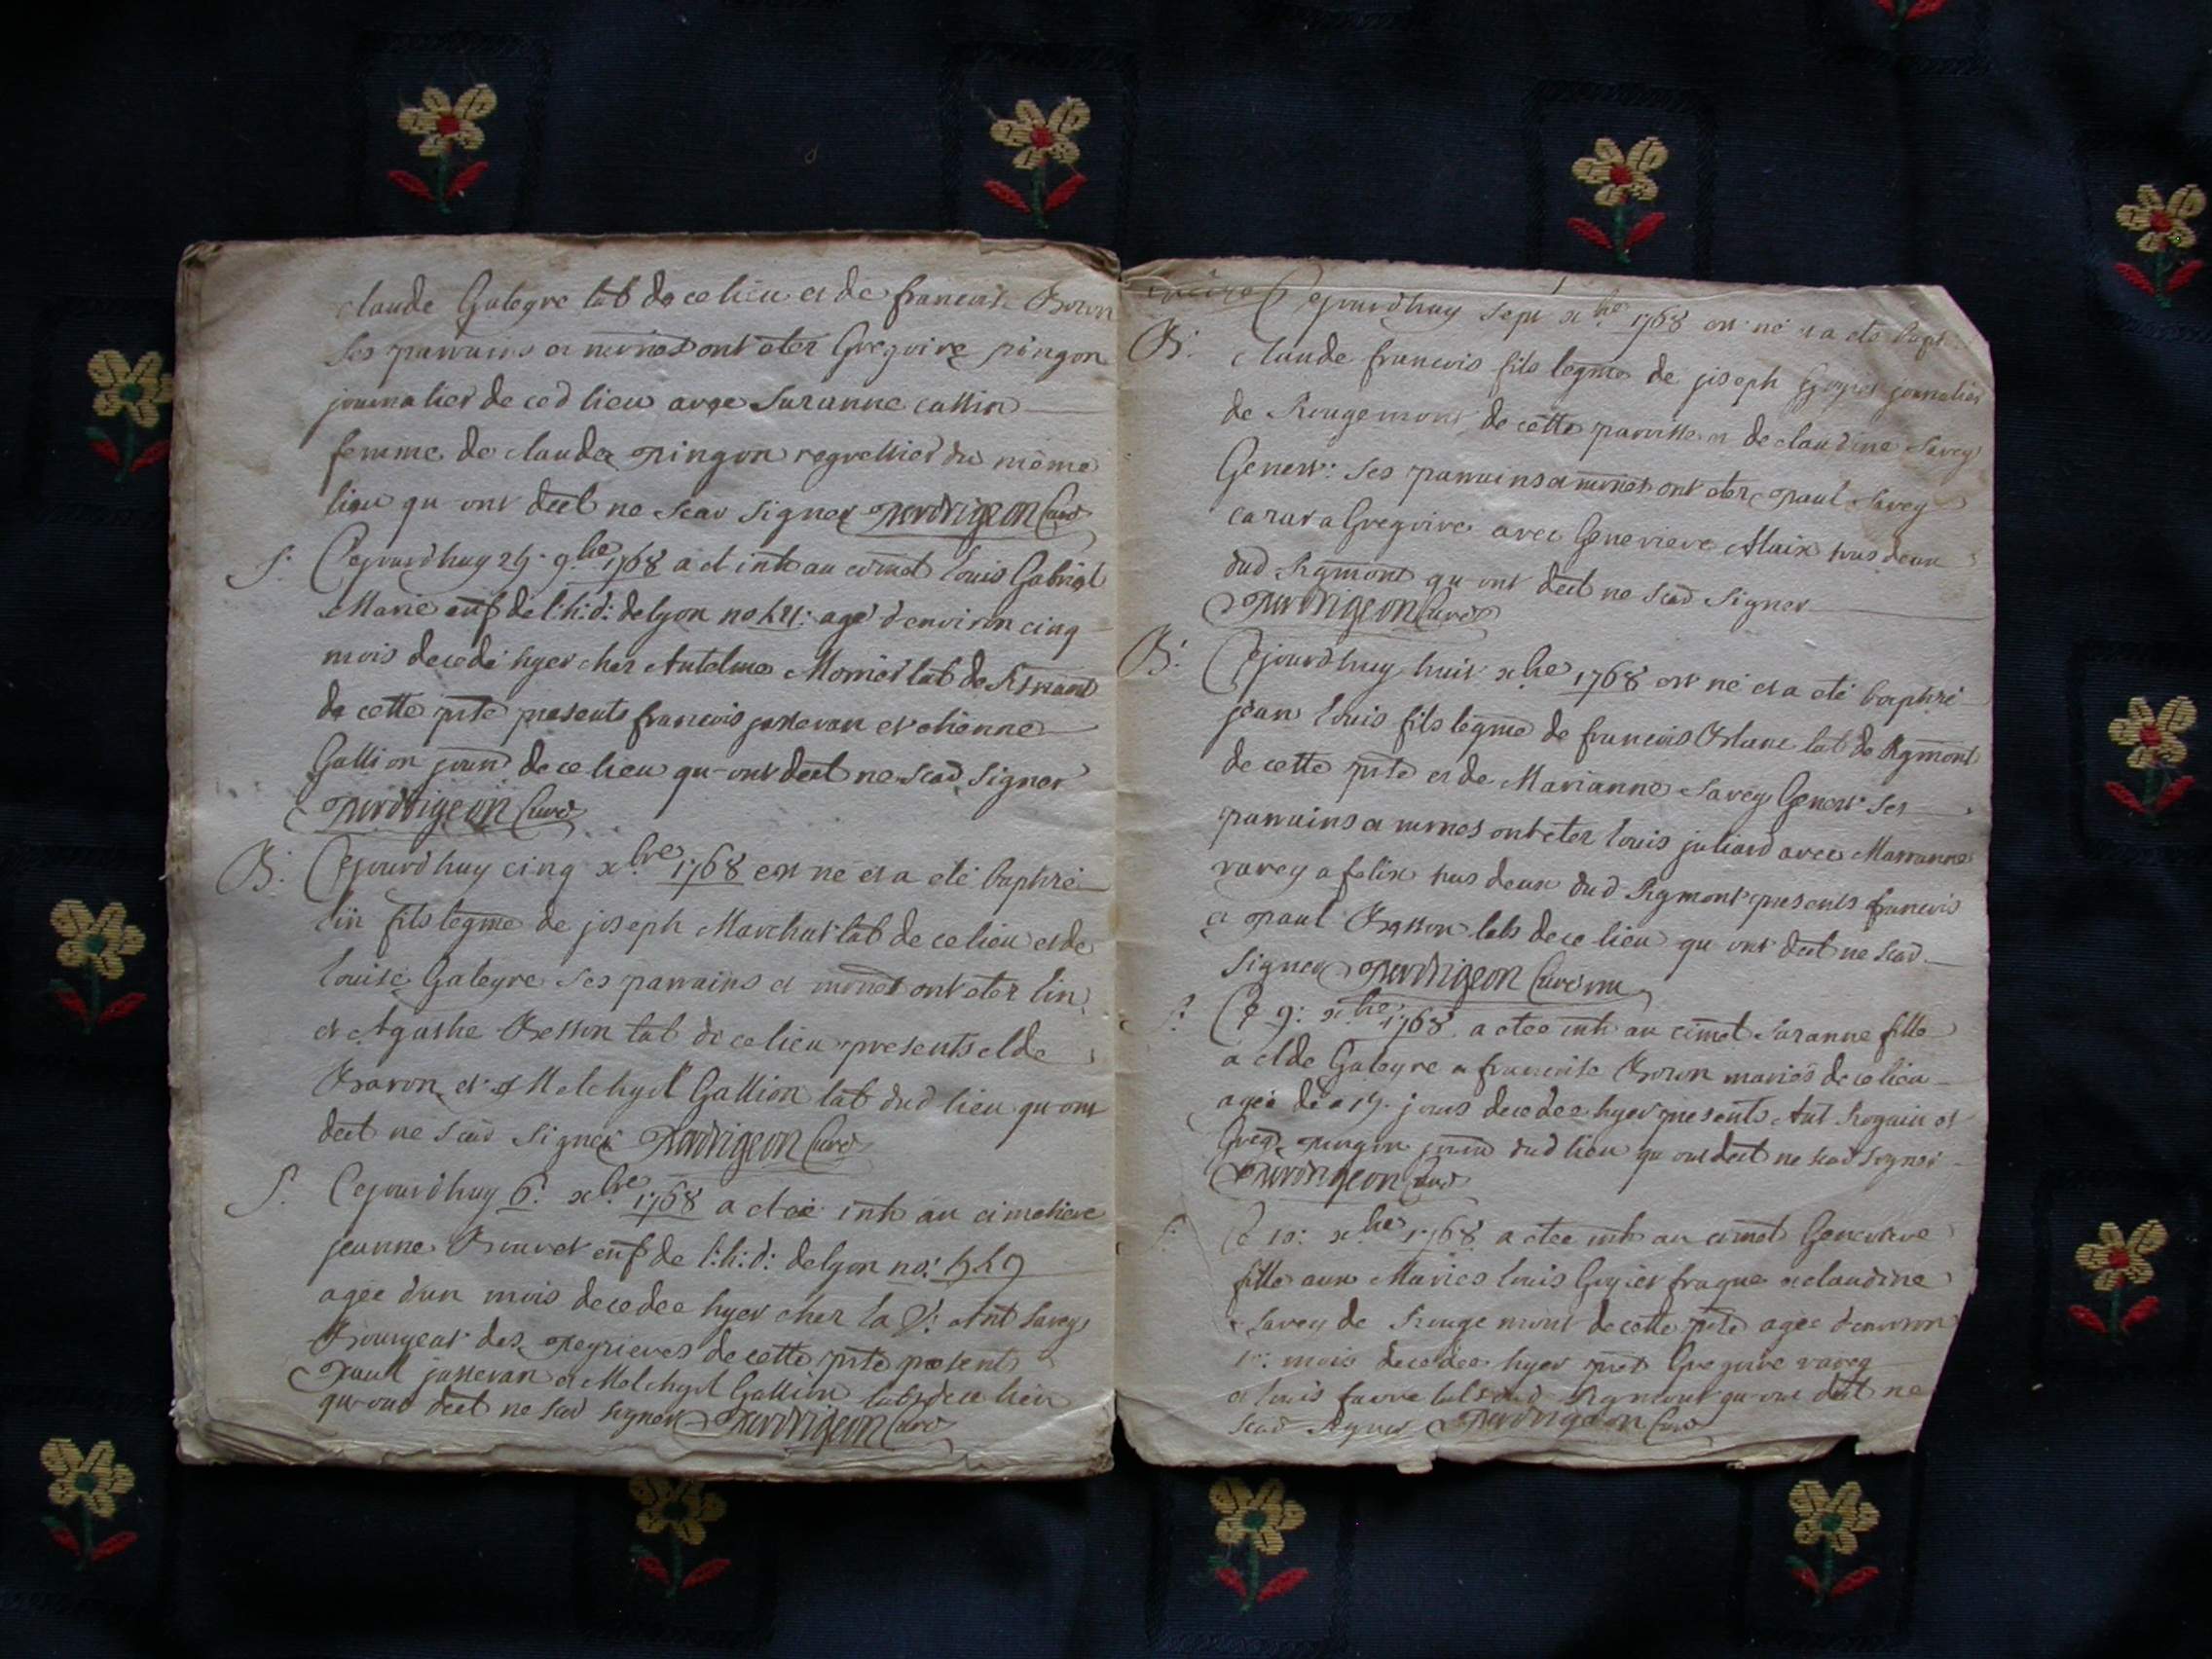 claude Galegre lab de ce lieu et de francoise Boron
ses parrains et mrnes ont eter Gregoire pingon
journalier de ced lieu avec Suzanne cattin
femme de claude pingon regrettier du même
lieu qu ont deet ne scav signer perdrigeon Curé
S. Cejourdhuy 29. 9bre 1768 a et inh au cimet louis Gabriel
Marie enf de l:h:d: de lyon no agé d environ cinq
mois decedé hyer chez Antelme lab de
de cette pste presents francois jasseran et etienne
Gallion journ de ce lieu qu-ont deet ne scav signer
perdrigeon Curé
B. Cejourdhuy cinq xbre 1768 est ne et a eté baptizé
lin fils legme de joseph Marchat lab de ce lieu et de
louise Galegre ses parrains et mrnes ont eter lin
et Agathe Besson lab de ce lieu presents clde
Baron et Melchyd Gallion lab dud lieu qu-ont
deet ne scav signer perdrigeon Curé
S. Cejourdhuy 6: xbre 1768 a etee inh au cimetiere
jeanne Bouvet enf de l:h:d: de lyon no:
agee d'un mois decedee hyer chez la V: Ant Savey
Bourgeat des de cette pste presents
paul jasseran et Melchyd Gallion labs de ce lieu
qu-ont deet ne scav signer perdrigeon Curé
Cejourdhuy sept xbre 1768 est né et a eté bapt
B. claude francois fils legme de joseph journalier
de Rougemont de cette paroisse et de claudine Savey
Genest: ses parrains et mrnes ont eter paul Savey
a Gregoire avec Genevieve Alaix tous deux
dud Rgmont qu-ont deet ne scav signer
perdrigeon Curé
B. Cejourdhuy huit xbre 1768 est né et a eté baptizé
jean louis fils legme de francois lab de Rgmont
de cette pste et de Marianne Savey Genest ses
parrains et mrnes ont eter louis juliard avec Marianne
varey a felix tous deux dud Rgmont presents francois
et paul Besson labs de ce lieu qu ont deet ne scav
signer perdrigeon Curé
S. Ce 9: xbre 1768 a etee inh au cimet Suzanne fille
a clde Galegre et francoise Boron mariés de ce lieu
agée de 19. jours decedee hyer presents Ant et
Greg pingon journ dud lieu qu ont deet ne scav signer
perdrigeon Curé
S. Ce 10: xbre 1768 a etee inh au cimet Genevieve
fille aux Mariés louis et claudine
Savey de Rougemont de cette pste agee d'environ
mois decedee hyer pnts Gregoire varey
et louis favre labs dud Rgmont qu-ont deet ne
scav signer perdrigeon Curé